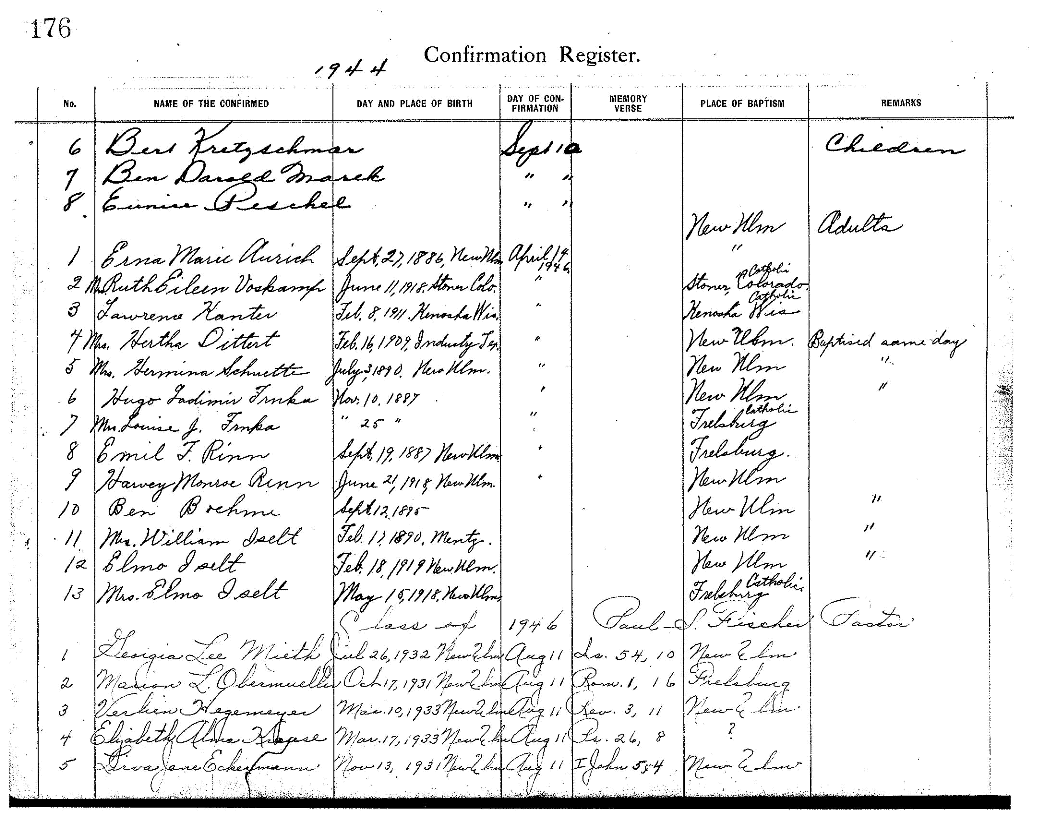 176
Confirmation Register.
1944
No. NAME OF THE CONFIRMED DAY AND PLACE OF BIRTH DAY OF CON-FIRMATION MEMORY VERSE PLACE OF BAPTISM REMARKS
6 Bert Kretzschmar Sept 10 Children
7 Ben Darold Marek " "
8 Eunice Peschel " "
New Ulm Adults
1 Erna Marie Aurich Sept. 27, 1886, New Ulm April 14 1946 "
2 Mrs Ruth Eileen Voskamp June 11, 1918, Stoner Colo. " Stoner, Colorado Catholic
3 Lawrence Kanter Feb. 8, 1911. Kenosha Wis. " Kenosha Wis Catholic
4 Mrs. Hertha Dittert Feb. 16, 1909, Industry Tex. " New Ulm. Baptised same day
5 Mrs. Hermina Schuette July 3, 1890. New Ulm. " New Ulm "
6 Hugo Ladimir Trnka Nov. 10, 1887 " New Ulm "
7 Mrs. Louise J. Trnka " 25 " " Frelsburg Catholic
8 Emil F. Rinn Sept. 19, 1887 New Ulm " Frelsburg.
9 Harvey Monroe Rinn June 21, 1918, New Ulm. " New Ulm
10 Ben Boehme Sept. 12, 1895 New Ulm "
11 Mrs. William Iselt Feb. 17, 1890, Mentz. New Ulm "
12 Elmo Iselt Feb. 18, 1919 New Ulm. New Ulm "
13 Mrs. Elmo Iselt May 15, 1918, New Ulm, Frelsburg Catholic
Class of 1946 Paul S. Fischer Pastor
1 Georgia Lee Mieth Jul 26, 1932 New Ulm Aug 11 Is. 54, 10 New Ulm
2 Marion L. Obermueller Oct 17, 1931 New Ulm Aug 11 Rom. 1, 16 Frelsburg
3 Hegemeyer Mar. 10, 1933 New Ulm Aug 11 Rev. 3, 11 New Ulm
4 Elizabeth Alma Mar. 17, 1933 New Ulm Aug 11 Ps. 26, 8 ?
5 Jane Eckermann Nov 13, 1931 New Ulm Aug 11 I John 5:4 New Ulm